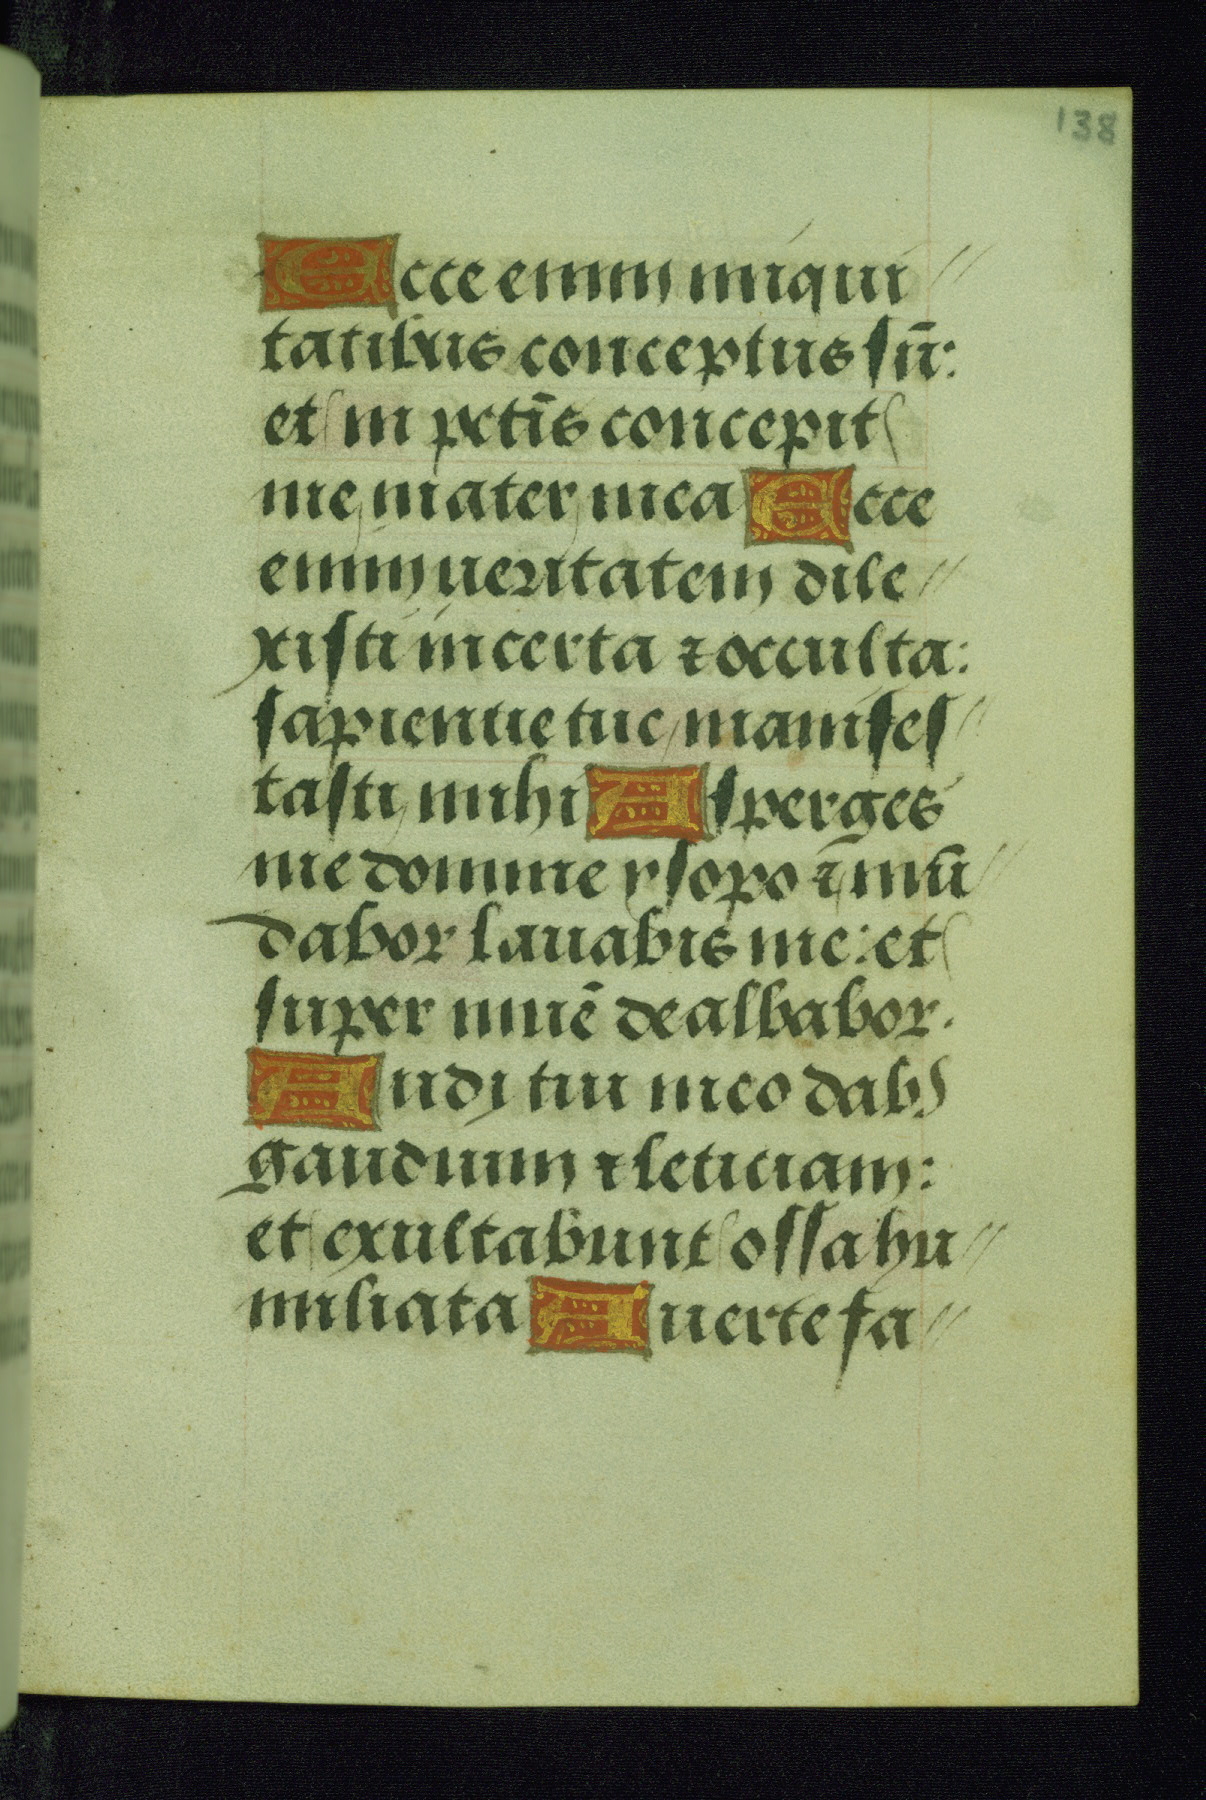 138
Ecce enim iniqui//
tatibus conceptus sū:
et in pctīs concepit
me mater mea Ecce
enim ueritatem dile//
xisti incerta ⁊ occulta:
sapientie tue manifes//
tasti mihi Asperges
me domine ysopo ⁊ mū//
dabor lauabis me: et
super niuē dealbabor.
Auditui meo dabis
gaudium ⁊ leticiam:
et exultabunt ossa hu//
miliata Auerte fa//